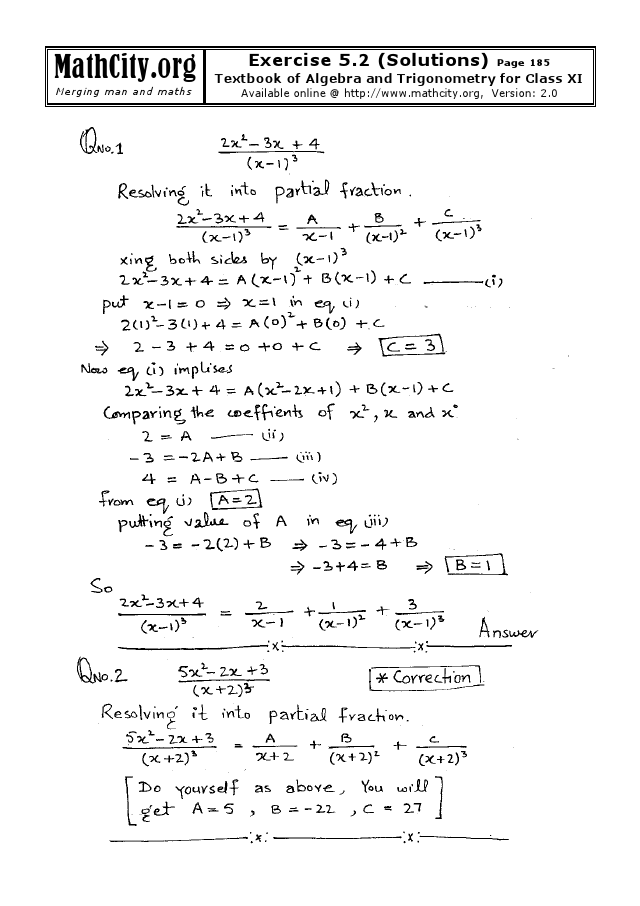 MathCity.org
Merging man and maths
Exercise 5.2 (Solutions) Page 185
Textbook of Algebra and Trigonometry for Class XI
Available online @ http://www.mathcity.org, Version: 2.0
QNo.1 (2x²-3x+4)/(x-1)³
Resolving it into partial fraction.
(2x²-3x+4)/(x-1)³ = A/(x-1) + B/(x-1)² + C/(x-1)³
xing both sides by (x-1)³
2x²-3x+4 = A(x-1)² + B(x-1) + C —— (i)
put x-1=0 ⇒ x=1 in eq (i)
2(1)²-3(1)+4 = A(0)²+B(0)+C
⇒ 2-3+4 = 0+0+C ⇒ C=3
Now eq (i) implises
2x²-3x+4 = A(x²-2x+1) + B(x-1)+C
Comparing the coeffients of x², x and x°
2 = A —— (ii)
-3 = -2A+B —— (iii)
4 = A-B+C —— (iv)
from eq (i) A=2
putting value of A in eq (iii)
-3 = -2(2)+B ⇒ -3 = -4+B
⇒ -3+4=B ⇒ B=1
So
(2x²-3x+4)/(x-1)³ = 2/(x-1) + 1/(x-1)² + 3/(x-1)³ Answer
QNo.2 (5x²-2x+3)/(x+2)³ * Correction
Resolving it into partial fraction.
(5x²-2x+3)/(x+2)³ = A/(x+2) + B/(x+2)² + C/(x+2)³
[Do yourself as above, You will
get A=5, B=-22, C=27]